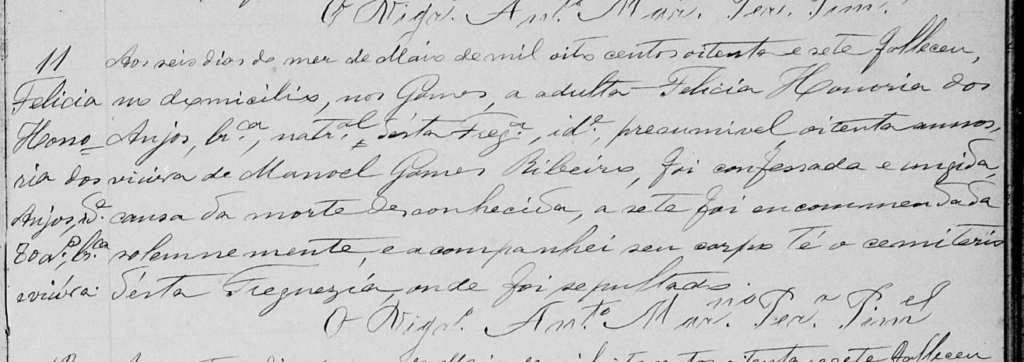 O Vigr.º Ant.º Mar. Per. Pim.el
11 Aos seis dias do mez de Maio de mil oito centos oitenta e sete falleceu,
Felicia no domicilio, nos Gomes, a adulta Felicia Honoria dos
Hono= Anjos, br.ca, natr.al désta Freg.a, id.e, presumivel, oitenta annos,
ria dos viúva de Manoel Gomes Ribeiro, foi confessada e ungida,
Anjos, id.e causa da morte desconhecida, a sete foi encommendada
80 a.s, br.ca solemnemente, e acompanhei seu corpo té o cemiterio
e viúva désta Freguezia, onde foi sepultado.
O Vigr.º Ant.º Mar.no Per.a Pim.el
falleceu